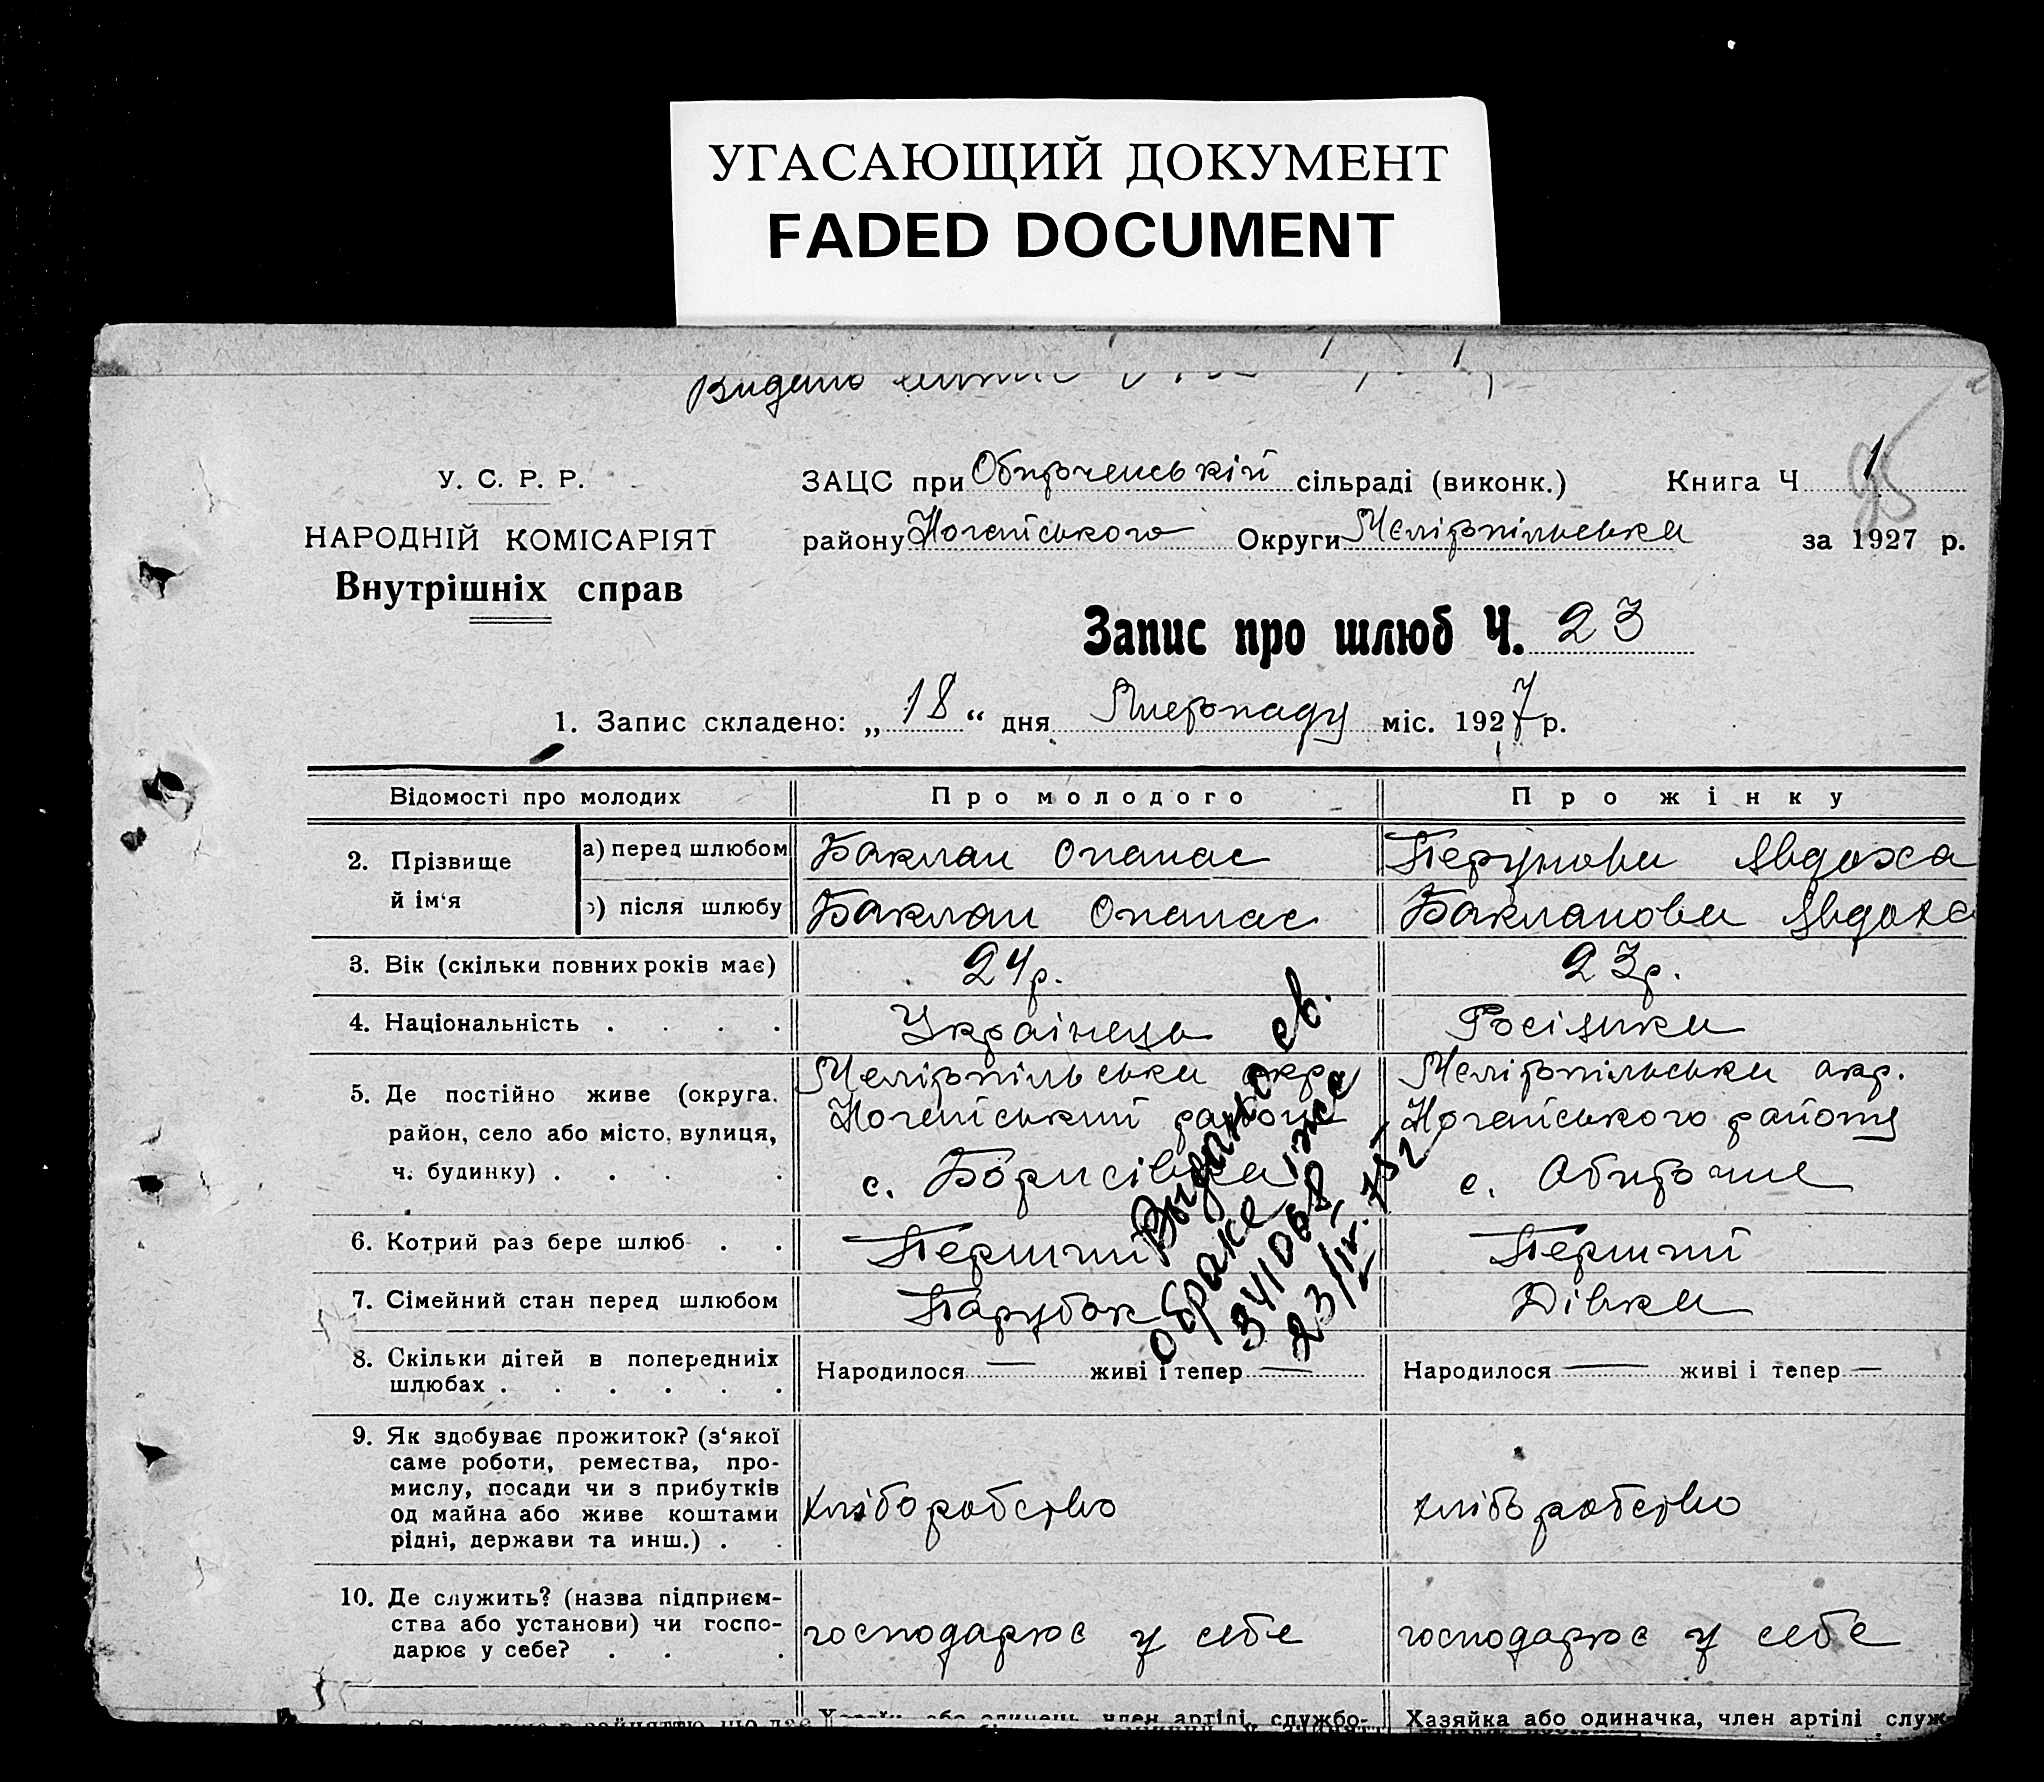 УГАСАЮЩИЙ ДОКУМЕНТ
FADED DOCUMENT
Видано
У. С. Р. Р.
НАРОДНІЙ КОМІСАРІЯТ
Внутрішніх справ
ЗАЦС при Обиточенській сільраді (виконк.) Книга Ч 1
95
району Ногайського Округи Мелітопільська за 1927 р.
Запис про шлюб Ч. 23
1. Запис складено: „18“ дня Листопаду міс. 1927 р.
Відомості про молодих Про молодого Про жінку
2. Прізвище й ім‘я
а) перед шлюбом Баклан Опанас Перунова Явдоха
б) після шлюбу Баклан Опанас Бакланова Явдоха
3. Вік (скільки повних років має) 24 р. 23 р.
4. Національність . . . . Українець Росіянка
5. Де постійно живе (округа, район, село або місто, вулиця, ч. будинку) . . . .
Мелітопільська окр. Ногайський района с. Борисівка
Мелітопільська окр. Ногайського району с. Обиточне
6. Котрий раз бере шлюб . . Перший Перший
7. Сімейний стан перед шлюбом Парубок Дівка
8. Скільки дітей в попередниіх шлюбах . . . . . .
Народилося — живі і тепер — Народилося — живі і тепер —
9. Як здобуває прожиток? (з‘якої
саме роботи, ремества, про-
мислу, посади чи з прибутків
од майна або живе коштами
рідні, держави та инш.) . .
хліборобство хліборобство
10. Де служить? (назва підприєм-
ства або установи) чи госпо-
дарює у себе? . . .
господарює у себе господарює у себе
Выдано св.
о браке
341068
23/
член артілі, службо- Хазяйка або одиначка, член артілі служ